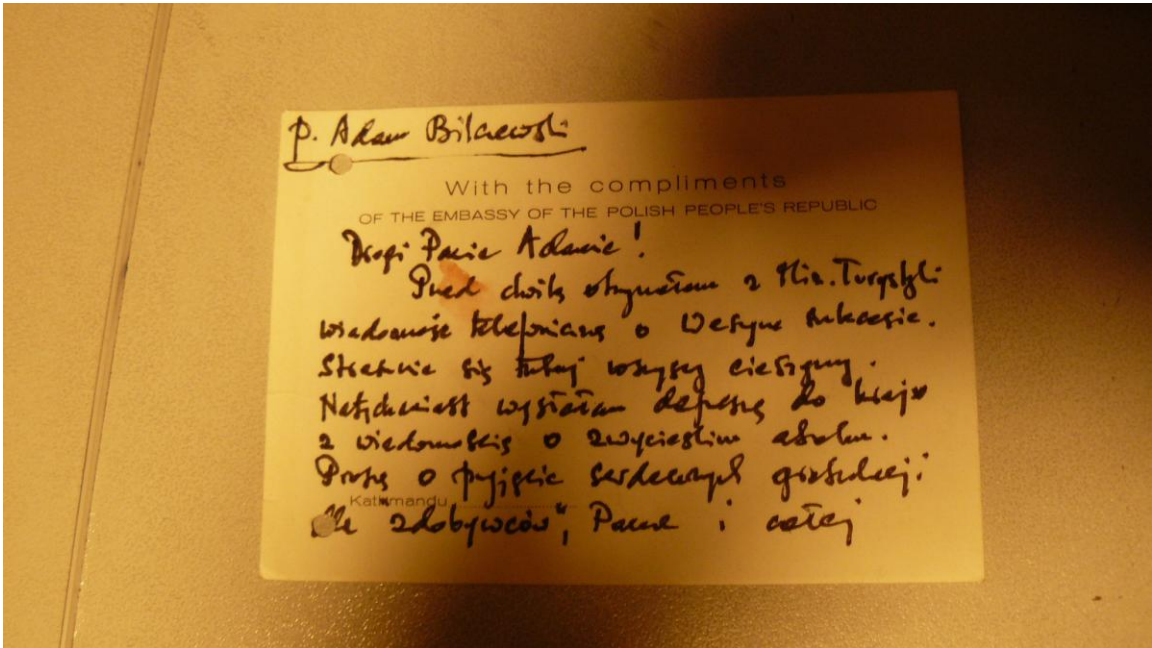 p. Adam Bilczewski
With the compliments
OF THE EMBASSY OF THE POLISH PEOPLE'S REPUBLIC
Drogi Panie Adamie!
Przed chwilą otrzymałem z Min. Turystyki
wiadomość telefoniczną o Waszym sukcesie.
Strasznie się tutaj wszyscy cieszymy.
Natychmiast wysłałam depeszę do kraju
z wiadomością o zwycięskim ataku.
Proszę o przyjęcie serdecznych gratulacji
Kathmandu
dla "zdobywców", Pana i całej